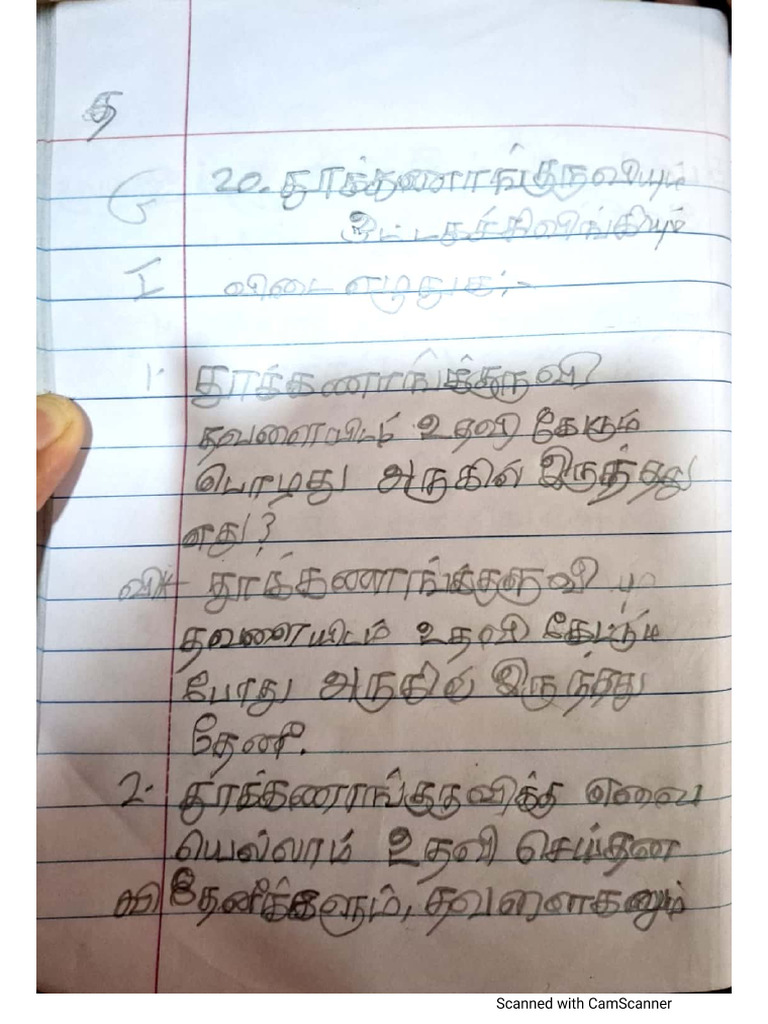 த
20. தூக்கணாங்குருவியும்
ஒட்டகச்சிவிங்கியும்
I விடை எழுதுக:-
1. தூக்கணாங்க்குருவி
தவளையிடம் உதவி கேடீகும்
பொழுது அருகில் இருந்தது
எது?
வி* தூக்கணாங்க்குருவி
தவளையிடம் உதவி கேட்டும்
போது அருகில் இருந்தது
தேனீ.
2. தூக்கணாங்குருவிக்கு எவை
யெல்லாம் உதவி செய்தன
வி தேனீக்களும், தவளைகளும்
Scanned with CamScanner